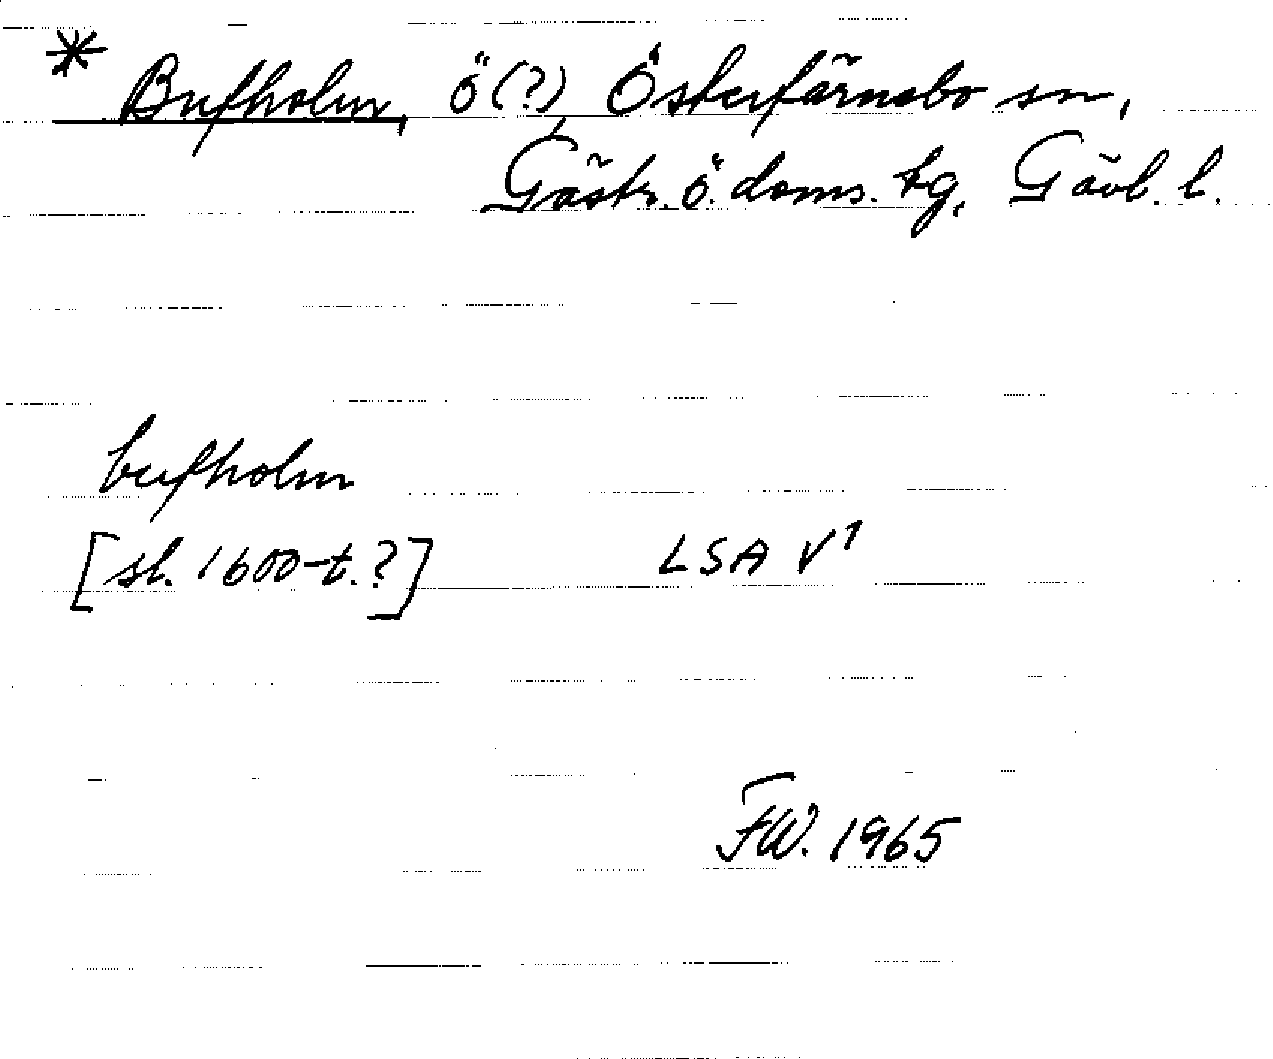 * Bufholm, ö(?), Österfärnebo sn,
Gästr. ö. doms. tg, Gävl. l.
bufholm
[sl. 1600-t.?] LSA V¹
FW. 1965